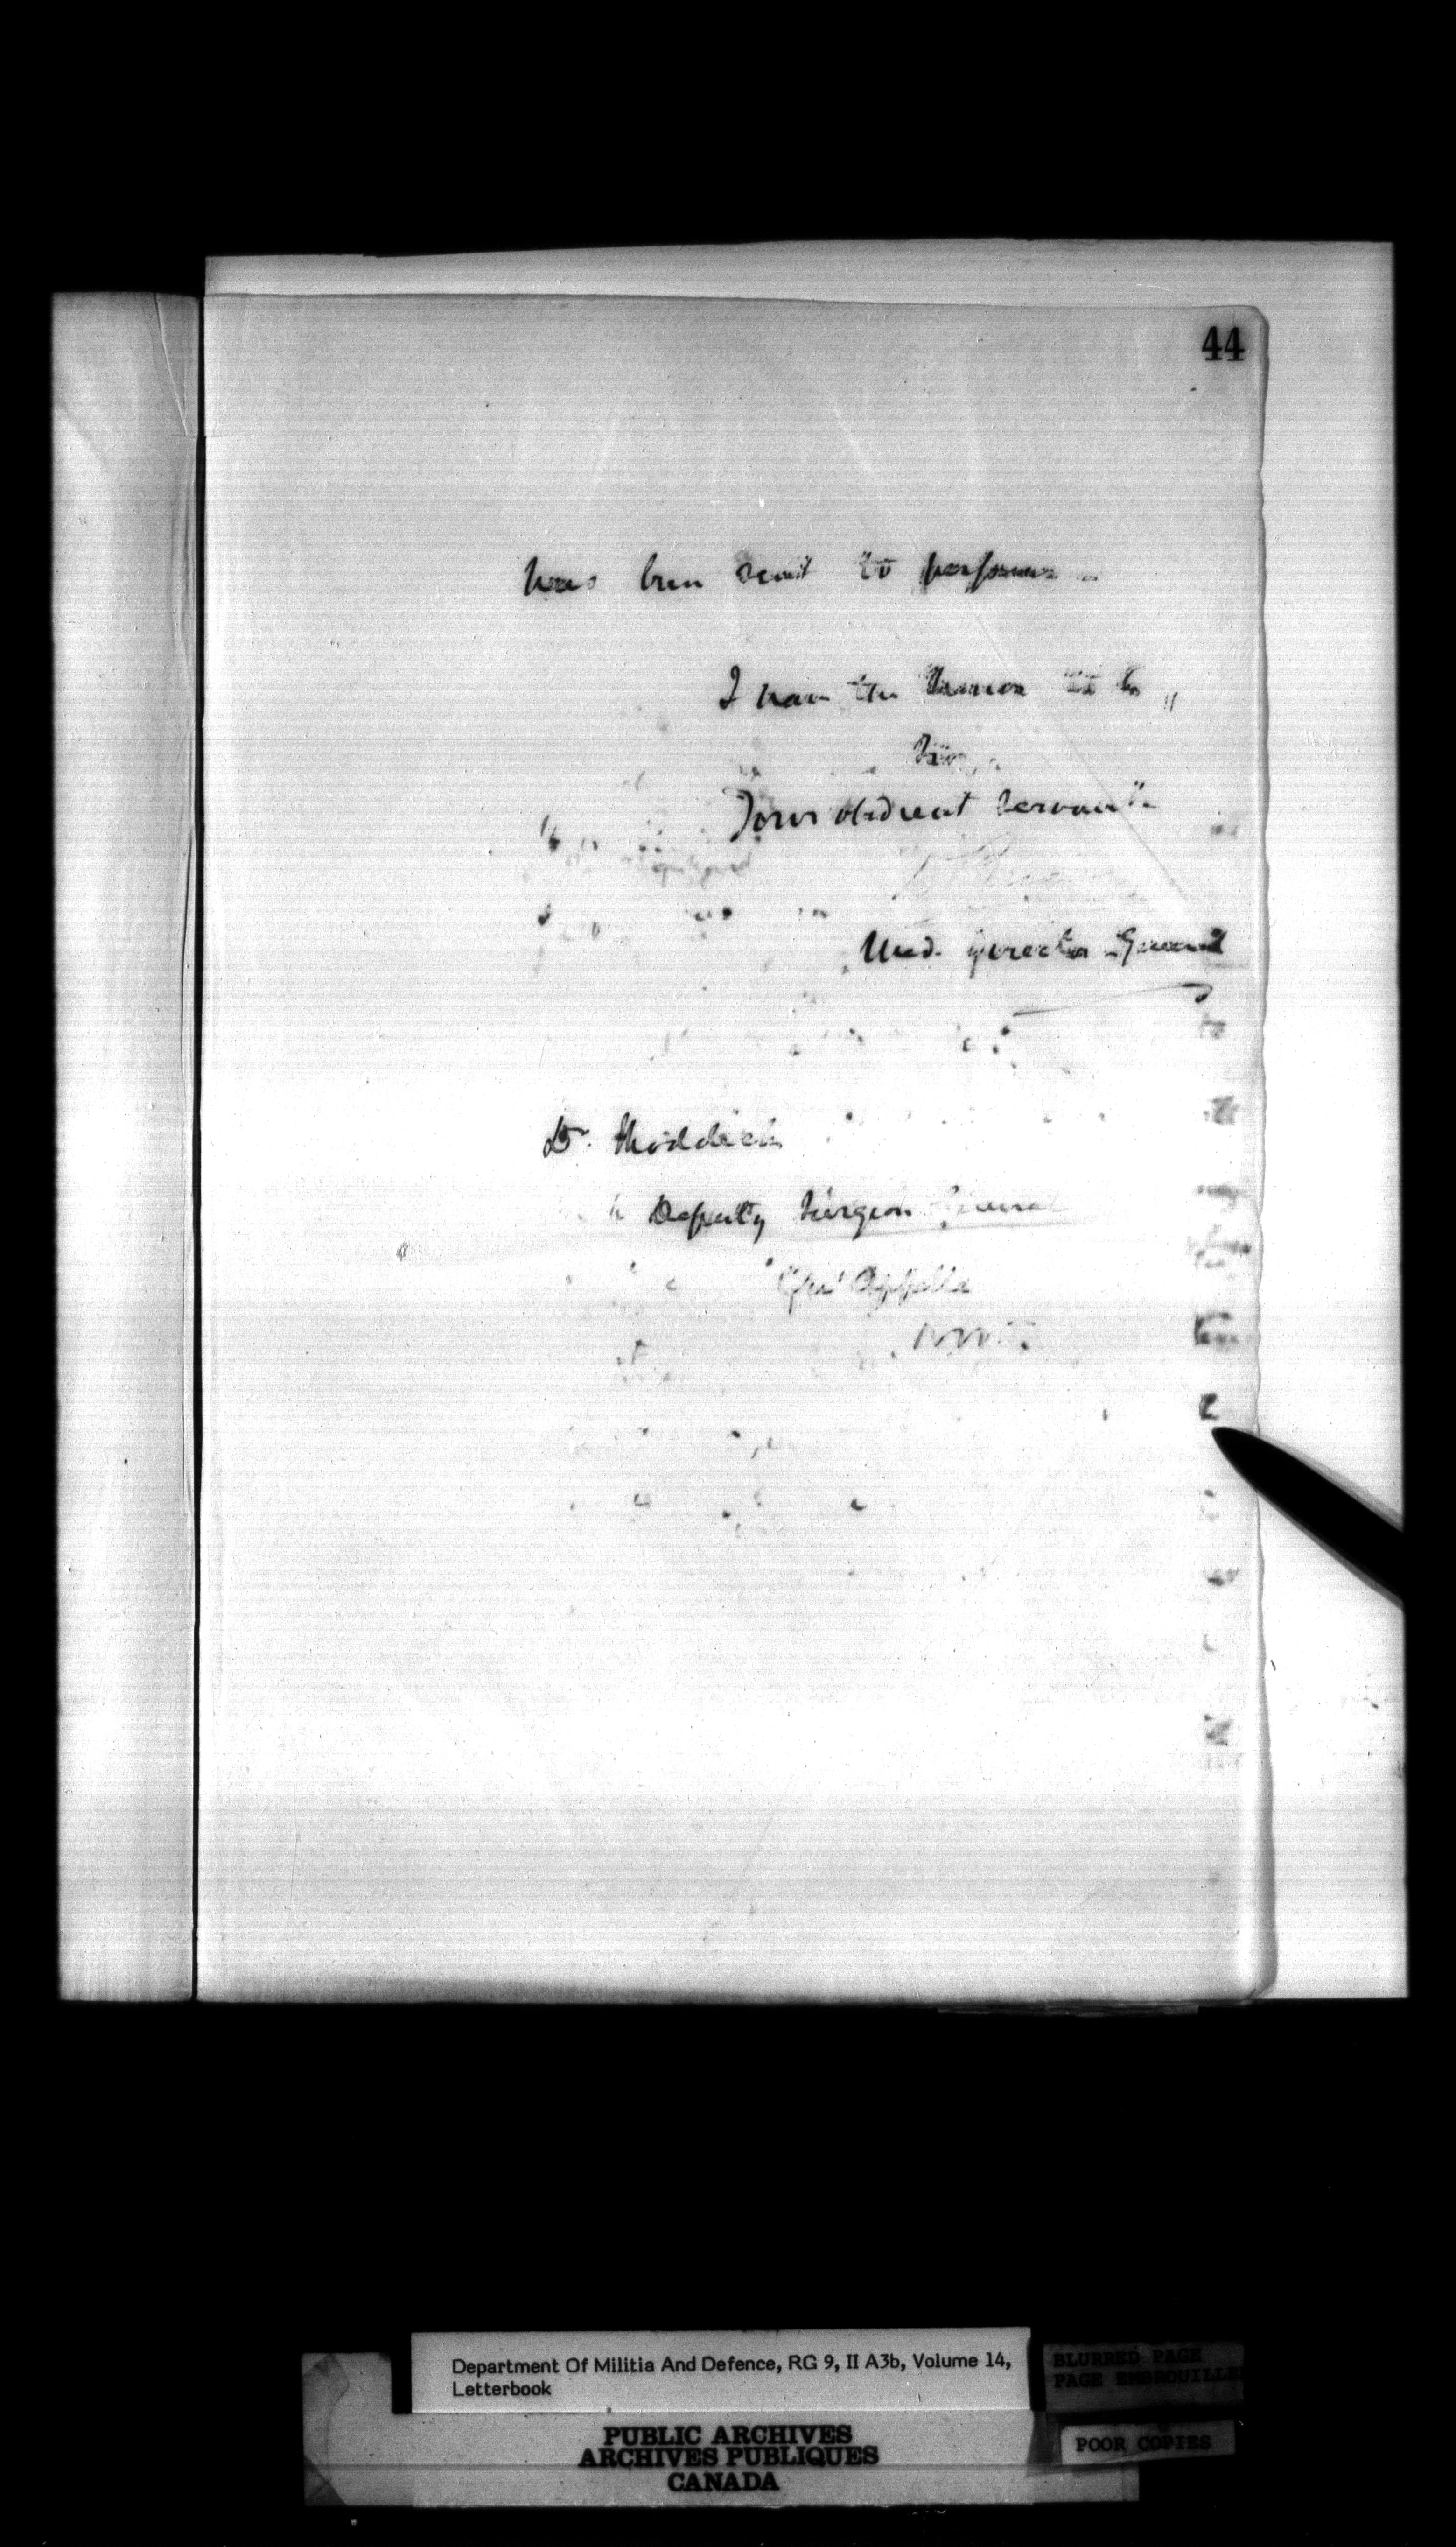 44
has been sent to perform
I have the honor to be,
Sir,
Your obedient servant
Med. Director General
Dr. Roddick
Deputy Surgeon General
Qu'Appelle
N.W.T.
Department Of Militia And Defence, RG 9, II A3b, Volume 14,
Letterbook
BLURRED PAGE
PAGE EMBROUILLEE
POOR COPIES
PUBLIC ARCHIVES
ARCHIVES PUBLIQUES
CANADA